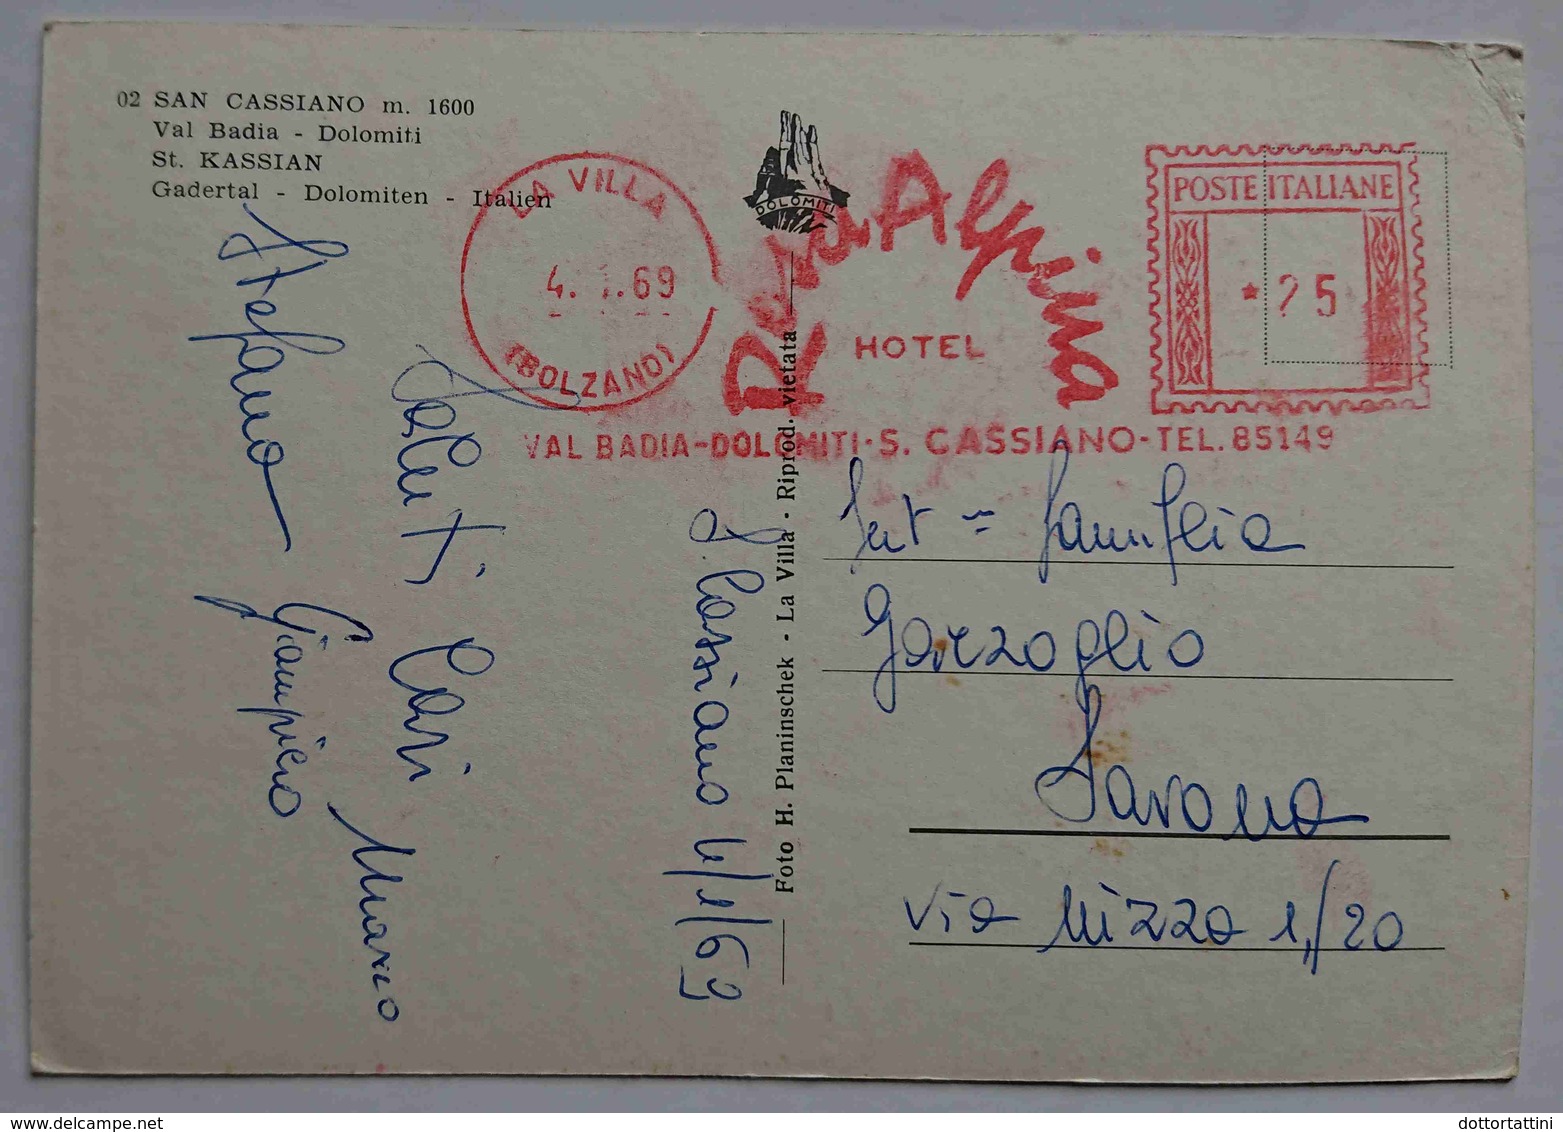 02 SAN CASSIANO m. 1600
Val Badia - Dolomiti
St. KASSIAN
Gadertal - Dolomiten - Italien
LA VILLA
4. 1.69
(BOLZANO)
DOLOMITI
Alpina
HOTEL
VAL BADIA-DOLOMITI-S. CASSIANO-TEL. 85149
POSTE ITALIANE
* 25
Foto H. Planinschek - La Villa - Riprod. vietata
S. Cassiano 4/1/69
Saluti Cari
Marco
Stefano
Giampiero
famiglia
Garzoglio
Savona
via Nizza 1/20
dottortattini